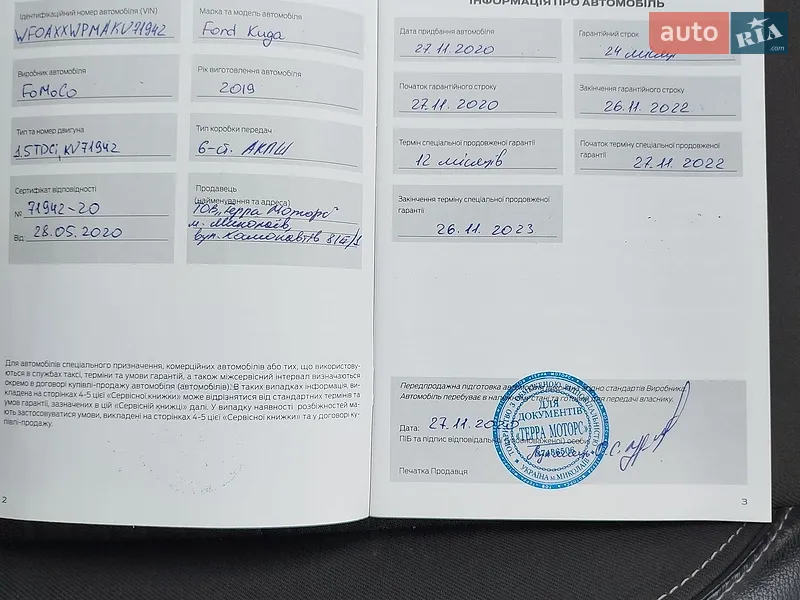 Ідентифікаційний номер автомобіля (VIN)
WF0AXXWPMAKV71942
Марка та модель автомобіля
Ford Kuga
Виробник автомобіля
FoMoCo
Рік виготовлення автомобіля
2019
Тип та номер двигуна
1.5TDCi, KV71942
Тип коробки передач
6-ст. АКПШ
Сертифікат відповідності
№ 71942-20
Від 28.05.2020
Продавець
(найменування та адреса)
ТОВ „Терра Моторс"
м. Миколаїв,
вул. Космонавтів 81
Для автомобілів спеціального призначення, комерційних автомобілів або тих, що використову-
ються в службах таксі, терміни та умови гарантій, а також міжсервісний інтервал визначаються
окремо в договорі купівлі-продажу автомобіля (автомобілів). В таких випадках інформація, ви-
кладена на сторінках 4-5 цієї «Сервісної книжки» може відрізнятися від стандартних термінів та
умов гарантій, зазначених в цій «Сервісній книжці» далі. У випадку наявності розбіжностей ма-
ють застосовуватися умови, викладені на сторінках 4-5 цієї «Сервісної книжки» та у договорі ку-
півлі-продажу.
2
ІНФОРМАЦІЯ ПРО АВТОМОБІЛЬ
Дата придбання автомобіля
27.11.2020
Гарантійний строк
24 місяці
Початок гарантійного строку
27.11.2020
Закінчення гарантійного строку
26.11.2022
Термін спеціальної продовженої гарантії
12 місяців
Початок терміну спеціальної продовженої
гарантії
27.11.2022
Закінчення терміну спеціальної продовженої
гарантії
26.11.2023
Передпродажна підготовка згідно стандартів Виробника.
Автомобіль перебуває в стані та готовий для передачі власнику.
Дата: 27.11.2020
ПІБ та підпис відповідальної (уповноваженої) особи
Печатка Продавця
ДЛЯ
ДОКУМЕНТІВ
"ТЕРРА МОТОРС"
УКРАЇНА м.МИКОЛАЇВ
3
auto RIA .com